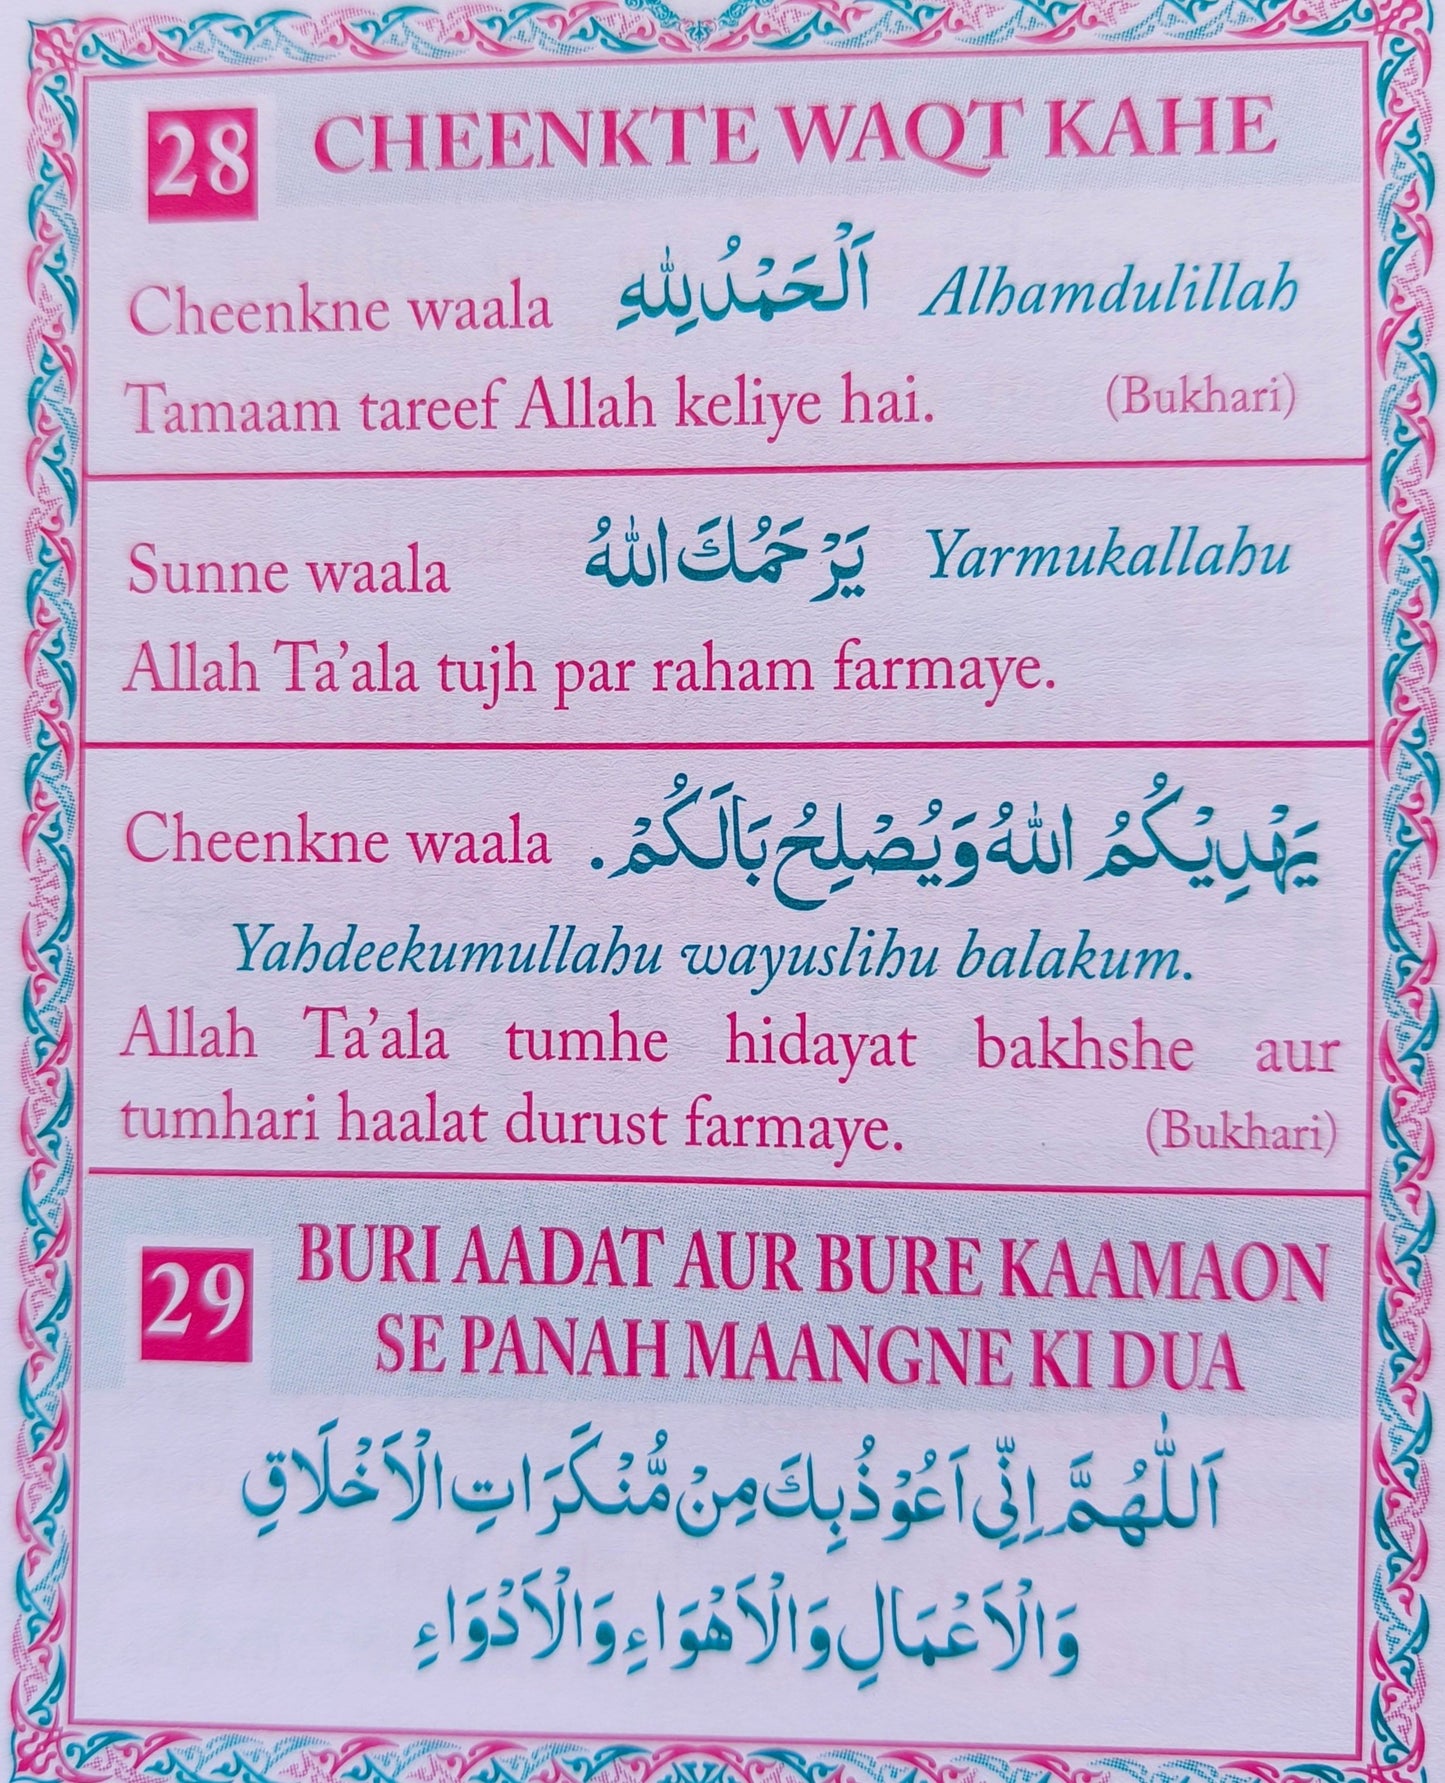 28 CHEENKTE WAQT KAHE
Cheenkne waala اَلْحَمْدُ لِلّٰهِ Alhamdulillah
Tamaam tareef Allah keliye hai. (Bukhari)
Sunne waala يَرْحَمُكَ اللّٰهُ Yarmukallahu
Allah Ta’ala tujh par raham farmaye.
Cheenkne waala يَهْدِيْكُمُ اللّٰهُ وَيُصْلِحُ بَالَكُمْ.
Yahdeekumullahu wayuslihu balakum.
Allah Ta’ala tumhe hidayat bakhshe aur
tumhari haalat durust farmaye. (Bukhari)
29 BURI AADAT AUR BURE KAAMAON
SE PANAH MAANGNE KI DUA
اَللّٰهُمَّ اِنِّىْ اَعُوْذُ بِكَ مِنْ مُّنْكَرَاتِ الْاَخْلَاقِ
وَالْاَعْمَالِ وَالْاَهْوَاءِ وَالْاَدْوَاءِ